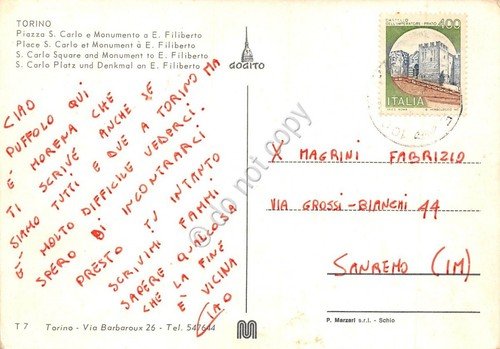 TORINO
Piazza S. Carlo e Monumento a E. Filiberto
Place S. Carlo et Monument à E. Filiberto
S. Carlo Square and Monument to E. Filiberto
S. Carlo Platz und Denkmal an E. Filiberto
DOGITO
CASTELLO
DELL'IMPERATORE-PRATO
400
ITALIA
CIAO
PUFFOLO QUI
È MORENA CHE
TI SCRIVE ANCHE SE
SIAMO TUTTI E DUE A TORINO MA
È MOLTO DIFFICILE VEDERCI.
SPERO DI INCONTRARCI
PRESTO TU INTANTO
SCRIVIMI FAMMI
SAPERE QUALCOSA
CHE LA FINE
È VICINA
CIAO
X MAGRINI FABRIZIO
VIA GROSSI-BIANCHI 44
SANREMO (IM)
do not copy
T 7 Torino - Via Barbaroux 26 - Tel. 547644
M
P. Marzari s.r.l. - Schio